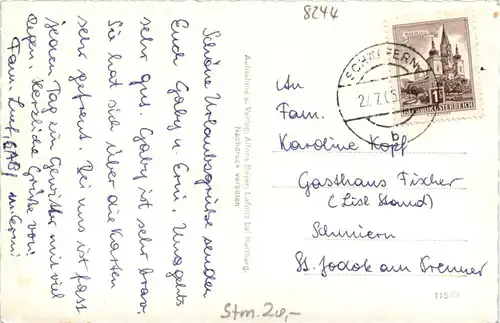 8244
Schöne Urlaubsgrüße senden
Euch Gaby u. Erni. Uns gehts
sehr gut. Gaby ist sehr brav.
Sie hat sich über die Karten
sehr gefreut. Bei uns ist fast
jeden Tag ein Gewitter mit viel
Regen. Herzliche Grüße von
Fam. GABI u. Erni
Aufnahme u. Verlag: Alfons Lafnitz bei Hartberg.
Nachdruck verboten
An
Fam.
Karoline Kopf
Gasthaus Fischer
(Lisl Stand)
Schmirn
St. Jodok am Brenner
SCHÄFFERN
2.7.65
b
MARIAZELL
REPUBLIK ÖSTERREICH
115
Stm. 20,-